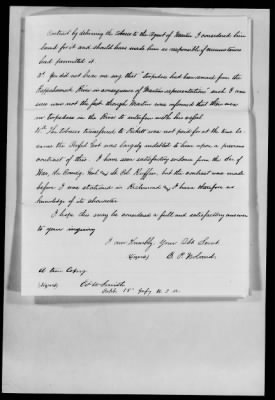 Contract by delivering the tobacco to the Agent of Martin I considered him
bound for it and should have made him so responsible if circumstances
had permitted it.
3d You did not hear me say that "torpedoes had been removed from the
Rappahannock River in consequence of Martin representation" and I am
sure was not the fact though Martin was informed that there were
no torpedoes in the River to interfere with his
4th The tobacco transferred to was not paid for at the time be
cause the Confed Govt was largely indebted to him upon a previous
contract of this. I have seen satisfactory evidence from the Sec of
War, the Comsry Genl & Lt Col Ruffin, but the contract was made
before I was stationed in Richmond & I have therefore no
knowledge of its character
I hope this may be considered a full and satisfactory answer
to your inquiry
I am Humbly Your Obt Servt.
(Signed) B. P. Noland.
A true Copy
(Signed)
15" Infy U. S. A.